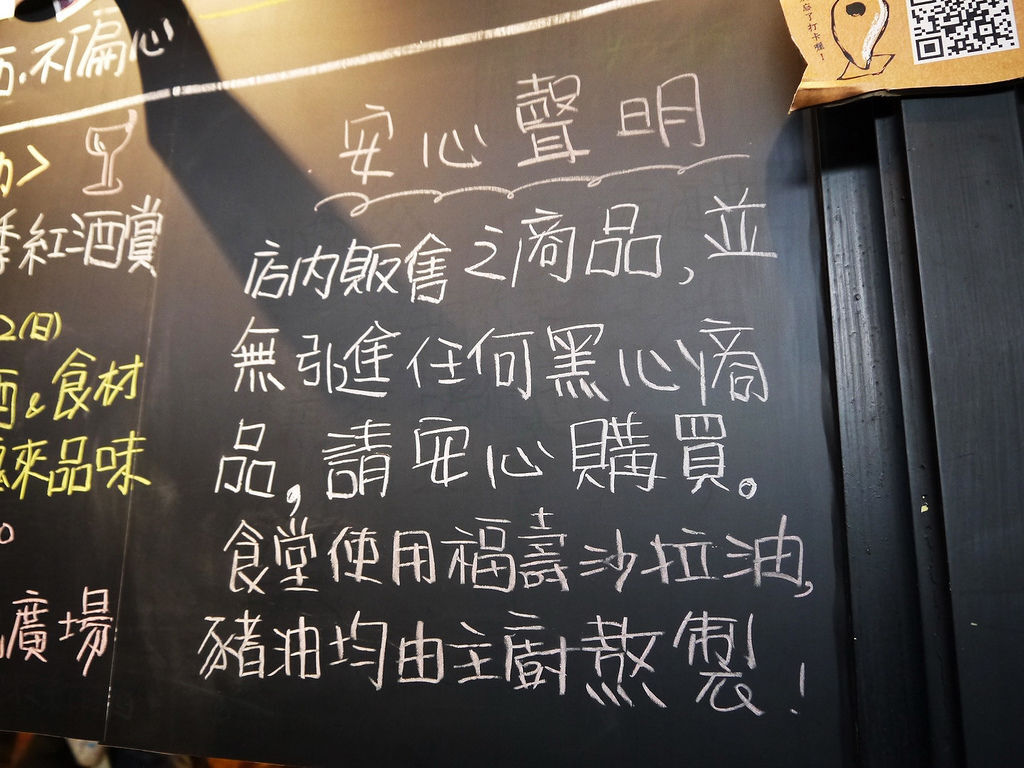 不偏心
紅酒賞
(日)
&食材
來品味
廣場
安心聲明
店內販售之商品,並
無引進任何黑心商
品,請安心購買。
食堂使用福壽沙拉油,
豬油均由主廚熬製!
忘了打卡喔!